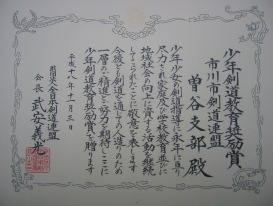 少年剣道教育奨励賞
市川市剣道連盟
曽谷支部殿
少年少女の剣道指導に永年に亘り
尽力され家庭及び学校教育並びに
地域社会の向上に資する活動を継続
してこられたことに敬意を表します
今後とも剣道を通しての人造りのため
一層のご精進とご努力を期待しここに
少年剣道教育奨励賞を贈ります
平成十八年十一月三日
財団法人全日本剣道連盟
会長 武安義光